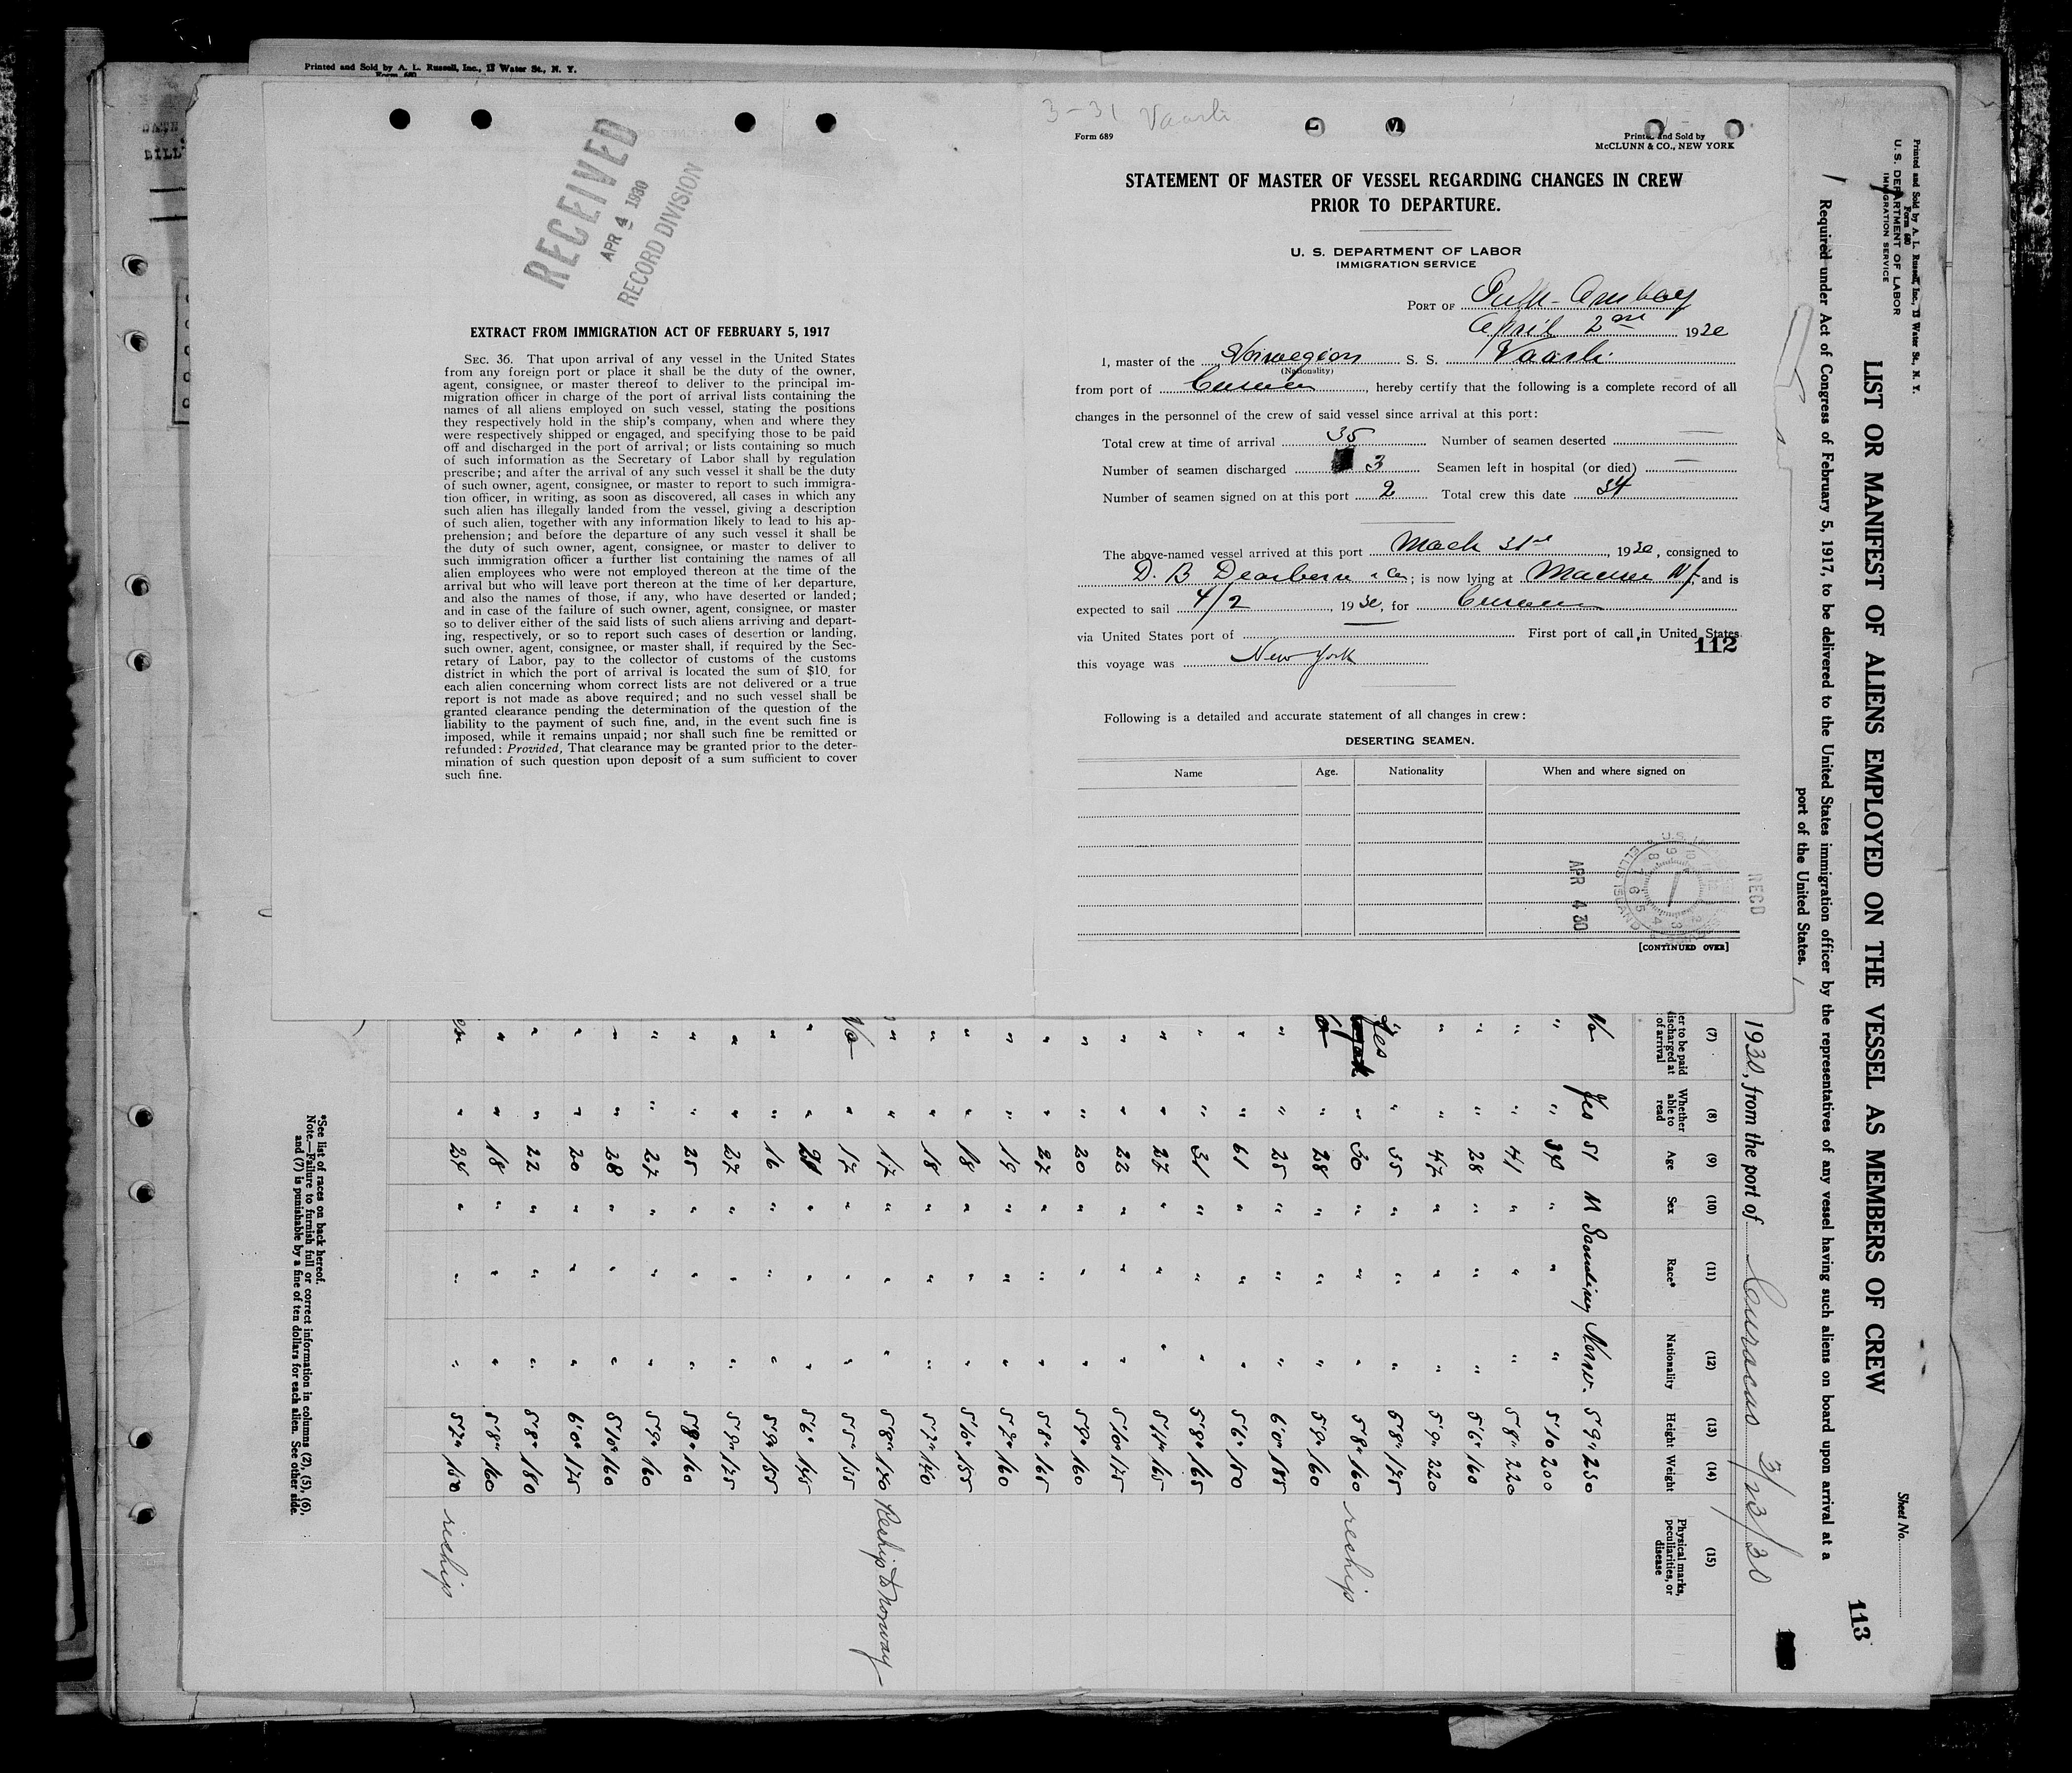 Printed and Sold by A. L. Russell, Inc., 13 Water St., N. Y.
Form 680
RECEIVED
APR 4 1930
RECORD DIVISION
EXTRACT FROM IMMIGRATION ACT OF FEBRUARY 5, 1917
SEC. 36. That upon arrival of any vessel in the United States
from any foreign port or place it shall be the duty of the owner,
agent, consignee, or master thereof to deliver to the principal im-
migration officer in charge of the port of arrival lists containing the
names of all aliens employed on such vessel, stating the positions
they respectively hold in the ship's company, when and where they
were respectively shipped or engaged, and specifying those to be paid
off and discharged in the port of arrival; or lists containing so much
of such information as the Secretary of Labor shall by regulation
prescribe; and after the arrival of any such vessel it shall be the duty
of such owner, agent, consignee, or master to report to such immigra-
tion officer, in writing, as soon as discovered, all cases in which any
such alien has illegally landed from the vessel, giving a description
of such alien, together with any information likely to lead to his ap-
prehension; and before the departure of any such vessel it shall be
the duty of such owner, agent, consignee, or master to deliver to
such immigration officer a further list containing the names of all
alien employees who were not employed thereon at the time of the
arrival but who will leave port thereon at the time of her departure,
and also the names of those, if any, who have deserted or landed;
and in case of the failure of such owner, agent, consignee, or master
so to deliver either of the said lists of such aliens arriving and depart-
ing, respectively, or so to report such cases of desertion or landing,
such owner, agent, consignee, or master shall, if required by the Sec-
retary of Labor, pay to the collector of customs of the customs
district in which the port of arrival is located the sum of $10, for
each alien concerning whom correct lists are not delivered or a true
report is not made as above required; and no such vessel shall be
granted clearance pending the determination of the question of the
liability to the payment of such fine, and, in the event such fine is
imposed, while it remains unpaid; nor shall such fine be remitted or
refunded: Provided, That clearance may be granted prior to the deter-
mination of such question upon deposit of a sum sufficient to cover
such fine.
3-31 Vaarli
Form 689
Printed and Sold by
McCLUNN & CO., NEW YORK
STATEMENT OF MASTER OF VESSEL REGARDING CHANGES IN CREW
PRIOR TO DEPARTURE.
U. S. DEPARTMENT OF LABOR
IMMIGRATION SERVICE
PORT OF Perth-Amboy
April 2nd 1930
I, master of the Norwegian S. S. Vaarli
(Nationality)
from port of , hereby certify that the following is a complete record of all
changes in the personnel of the crew of said vessel since arrival at this port:
Total crew at time of arrival 35 Number of seamen deserted —
Number of seamen discharged 3 Seamen left in hospital (or died) —
Number of seamen signed on at this port 2 Total crew this date 34
The above-named vessel arrived at this port Mach 31st, 1930, consigned to
D. B Dearborn & Co; is now lying at Maurer NJ, and is
expected to sail 4/2, 1930, for
via United States port of First port of call in United States
112
this voyage was New York
Following is a detailed and accurate statement of all changes in crew:
DESERTING SEAMEN.
Name Age. Nationality When and where signed on
APR 4 30
RECD
ELLIS ISLAND
[CONTINUED OVER]
Printed and Sold by A. L. Russell, Inc., 13 Water St., N. Y.
Form 680
U. S. DEPARTMENT OF LABOR
IMMIGRATION SERVICE
Sheet No.
113
LIST OR MANIFEST OF ALIENS EMPLOYED ON THE VESSEL AS MEMBERS OF CREW
Required under Act of Congress of February 5, 1917, to be delivered to the United States immigration officer by the representatives of any vessel having such aliens on board upon arrival at a
port of the United States.
1930, from the port of Curacao 3/23/30
(7) (8) (9) (10) (11) (12) (13) (14) (15)
er to be paid discharged at of arrival Whether able to read Age Sex Race* Nationality Height Weight Physical marks, peculiarities, or disease
No Yes 51 M Scandinav Norw. 5'9" 230
" " 39 " " " 5'10 200
" " 41 " " " 5'8" 220
" " 28 " " " 5'6" 160
" " 47 " " " 5'9" 220
Yes " 35 " " " 5'8" 175
" 30 " " " 5'8" 160 reship
" 28 " " " 5'9" 160
" " 25 " " " 6'0" 185
" " 61 " " " 5'6" 150
" " 31 " " " 5'8" 165
" " 27 " " " 5'11" 165
" " 22 " " " 5'10" 175
" " 20 " " " 5'9" 160
" " 27 " " " 5'8" 165
" " 19 " " " 5'7" 160
" " 18 " " " 5'10" 155
" " 18 " " " 5'7" 140
" " 17 " " " 5'8" 170 Reship to Norway
No " 17 " " " 5'5" 135
" " 21 " " " 5'6" 145
" " 16 " " " 5'9" 155
" " 27 " " " 5'9" 175
" " 25 " " " 5'8" 160
" " 27 " " " 5'9" 160
" " 28 " " " 5'10" 160
" " 20 " " " 6'0" 175
" " 22 " " " 5'8" 180
" " 18 " " " 5'8" 160
" 24 " " " 5'7" 150 reship
*See list of races on back hereof.
Note.—Failure to furnish full or correct information in columns (2), (5), (6),
and (7) is punishable by a fine of ten dollars for each alien. See other side.